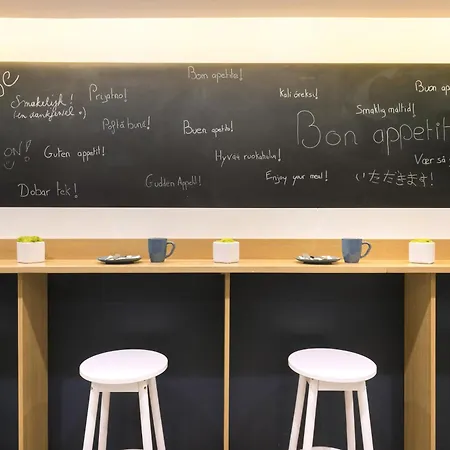 Smakelijk!
(en dankjewel)
Prijatno!
Bom apetite!
Kali óreksi!
Buon ape
Poftă bună!
Buen apetito!
Smaklig måltid!
Bon appetit
ON!
Guten appetit!
Hyvää ruokahalua!
Vær så
Dobar tek!
Gudden Appetit!
Enjoy your meal!
いただきます!